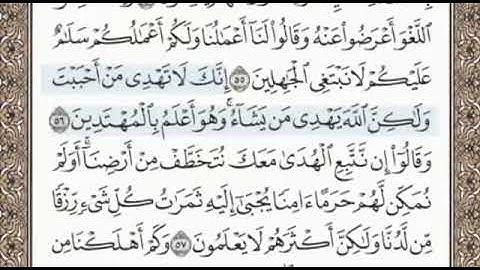 اللَّغْوَ أَعْرَضُوا۟ عَنْهُ وَقَالُوا۟ لَنَآ أَعْمَـٰلُنَا وَلَكُمْ أَعْمَـٰلُكُمْ سَلَـٰمٌ
عَلَيْكُمْ لَا نَبْتَغِى ٱلْجَـٰهِلِينَ ٥٥ إِنَّكَ لَا تَهْدِى مَنْ أَحْبَبْتَ
وَلَـٰكِنَّ ٱللَّهَ يَهْدِى مَن يَشَآءُ ۚ وَهُوَ أَعْلَمُ بِٱلْمُهْتَدِينَ ٥٦
وَقَالُوٓا۟ إِن نَّتَّبِعِ ٱلْهُدَىٰ مَعَكَ نُتَخَطَّفْ مِنْ أَرْضِنَآ ۚ أَوَلَمْ
نُمَكِّن لَّهُمْ حَرَمًا ءَامِنًا يُجْبَىٰٓ إِلَيْهِ ثَمَرَٰتُ كُلِّ شَىْءٍ رِّزْقًا
مِّن لَّدُنَّا وَلَـٰكِنَّ أَكْثَرَهُمْ لَا يَعْلَمُونَ ٥٧ وَكَمْ أَهْلَكْنَا مِن